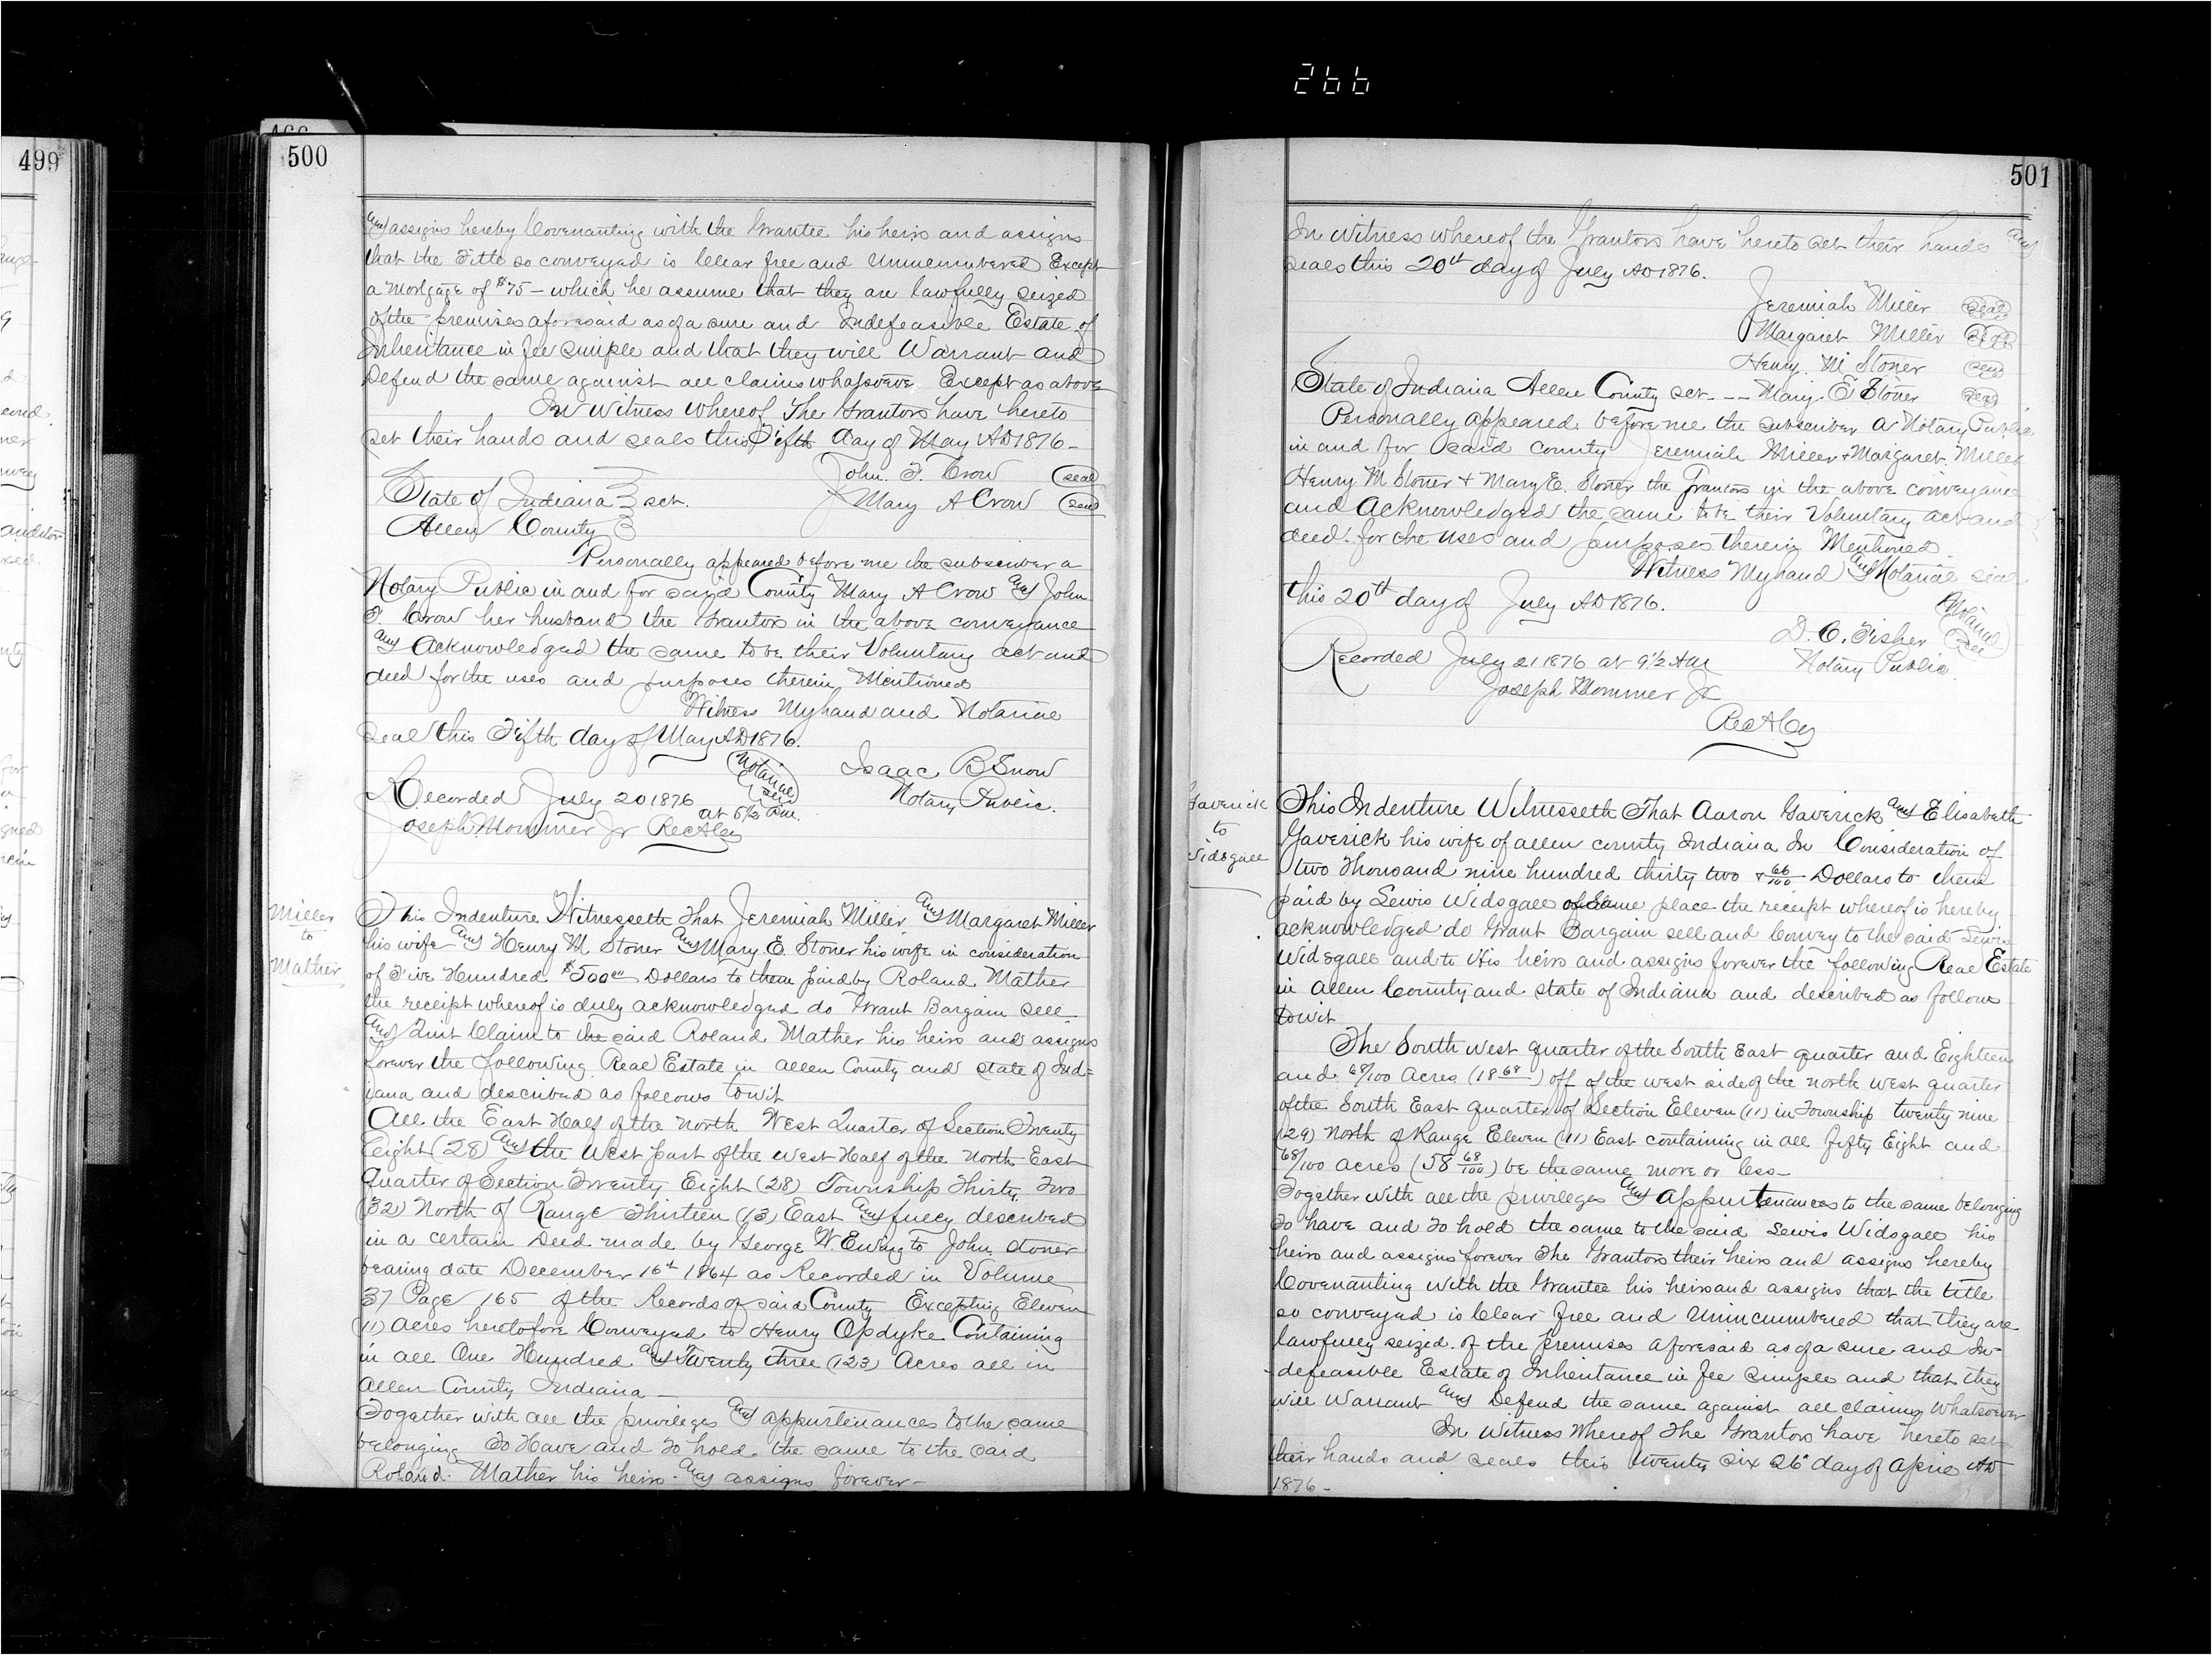 266
499
500
and assigns hereby Covenanting with the Grantee his heirs and assigns
that the Title so conveyed is Clear free and Unincumbered Except
a Mortgage of $75 - which he assume that they are lawfully seized
of the premises aforesaid as of a sure and Indefeasible Estate of
Inheritance in fee simple and that they will Warrant and
Defend the same against all claims whatsoever Except as above
In Witness Whereof The Grantors have hereto
set their hands and seals this Fifth day of May AD 1876 -
John. F. Crow (seal)
State of Indiana } sct. Mary A Crow (seal)
Allen County }
Personally appeared before me the subscriber a
Notary Public in and for said County Mary A Crow and John
F. Crow her husband the Grantors in the above conveyance
and Acknowledged the same to be their Voluntary act and
deed for the uses and purposes therein Mentioned
Witness My hand and Notarial
seal this Fifth day of May AD 1876.
(Notarial seal) Isaac B Snow
Recorded July 20 1876 Notary Public.
at 5 1/2 P.M.
Joseph Mommer Jr Rec A Co
Miller
to
Mather
This Indenture Witnesseth That Jeremiah Miller, and Margaret Miller
his wife and Henry M. Stoner and Mary E. Stoner his wife in consideration
of Five Hundred $500 00 Dollars to them paid by Roland Mather
the receipt whereof is duly acknowledged do Grant Bargain sell
and Quit Claim to the said Roland Mather his heirs and assigns
forever the following Real Estate in Allen County and state of Ind=
iana and described as follows towit
All the East Half of the North West Quarter of Section Twenty
Eight (28) and the West part of the West Half of the North East
Quarter of Section Twenty Eight (28) Township Thirty Two
(32) North of Range Thirteen (13) East and fully described
in a certain Deed made by George W. Ewing to John Stoner
bearing date December 16th 1864 as Recorded in Volume
37 Page 165 of the Records of said County Excepting Eleven
(11) Acres heretofore Conveyed to Henry Opdyke Containing
in all One Hundred and Twenty three (123) Acres all in
Allen County Indiana -
Together with all the privileges and appurtenances to the same
belonging To Have and To hold the same to the said
Roland Mather his heirs and assigns forever -
501
In Witness whereof the Grantors have hereto set their hands and
seals this 20th day of July AD 1876.
Jeremiah Miller (seal)
Margaret Miller (seal)
Henry. M Stoner (seal)
State of Indiana Allen County sct. -- Mary. E Stoner (seal)
Personally appeared before me the subscriber a Notary Public
in and for said County Jeremiah Miller + Margaret. Miller
Henry M Stoner + Mary E. Stoner the Grantors in the above conveyance
and Acknowledged the same to be their Voluntary act and
deed for the uses and purposes therein Mentioned.
Witness My hand and Notarial seal
this 20th day of July AD 1876.
D. C. Fisher (Notarial seal)
Recorded July 21 1876 at 9 1/2 AM Notary Public
Joseph Mommer Jr
Rec A Co
Gaverick
to
Widsgall
This Indenture Witnesseth That Aaron Gaverick and Elisabeth
Gaverick his wife of allen county Indiana In Consideration of
two Thousand nine hundred thirty two + 66/100 Dollars to them
paid by Lewis Widsgall of same place the receipt whereof is hereby
acknowledged do Grant Bargain sell and Convey to the said Lewis
Widsgall and to His heirs and assigns forever the following Real Estate
in Allen County and state of Indiana and described as follows
towit
The South west quarter of the South East quarter and Eighteen
and 68/100 Acres (18 68) off of the west side of the north west quarter
of the South East quarter of Section Eleven (11) in Township twenty nine
(29) North of Range Eleven (11) East containing in all fifty Eight and
68/100 acres (58 68/100) be the same more or less -
Together with all the privileges and Appurtenances to the same belonging
To have and To hold the same to the said Lewis Widsgall his
heirs and assigns forever The Grantors their heirs and assigns hereby
Covenanting with the Grantee his heirs and assigns that the title
so conveyed is Clear free and Unincumbered that they are
lawfully seized of the premises aforesaid as of a sure and In-
defeasible Estate of Inheritance in fee simple and that they
will Warrant and Defend the same against all claims Whatsoever
In Witness Whereof The Grantors have hereto set
their hands and seals this twenty six 26" day of April AD
1876 -